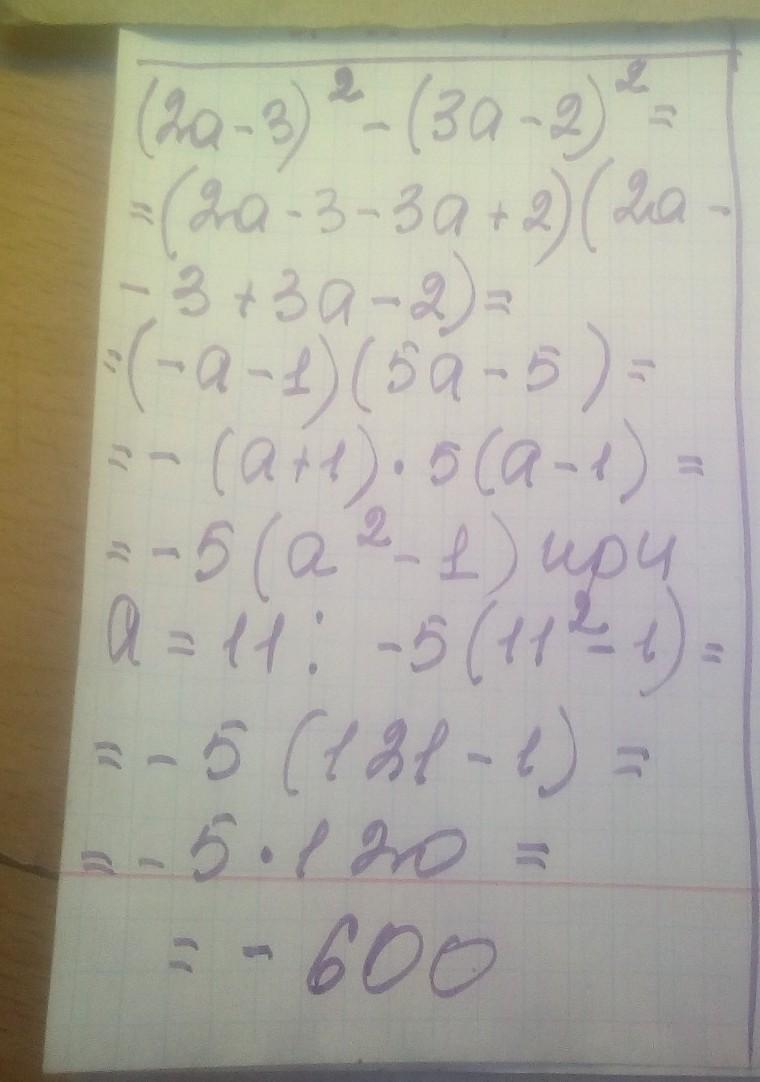 (2a-3)² - (3a-2)² =
=(2a-3-3a+2)(2a-
-3+3a-2)=
=(-a-1)(5a-5)=
=-(a+1)·5(a-1)=
=-5(a²-1) при
a=11: -5(11²-1)=
=-5(121-1)=
=-5·120=
=-600